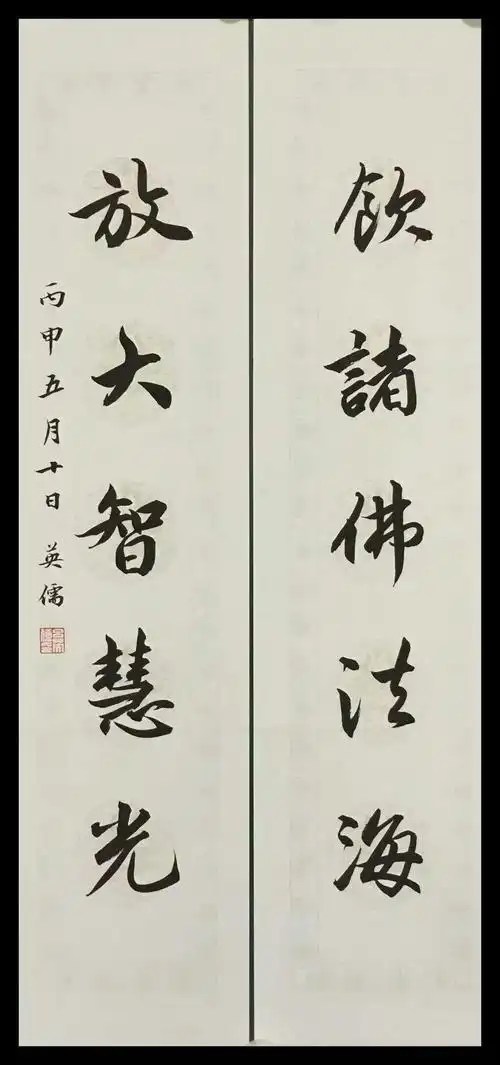 飲諸佛法海
放大智慧光
丙申五月十日 英儒